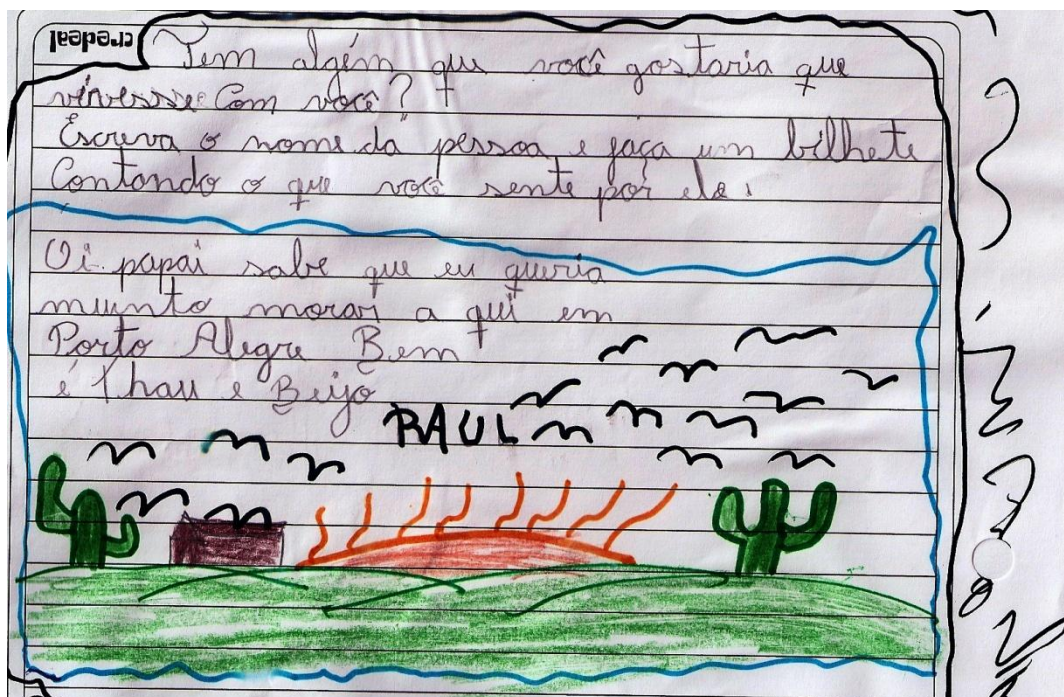 credeal
Tem algém que você gostaria que
vivesse Com você?
Escreva o nome da pessoa e faça um bilhete
Contando o que você sente por ela:
Oi papai sabe que eu queria
muinto morar a qui em
Porto Alegre Bem
é thau e Beijo
RAUL